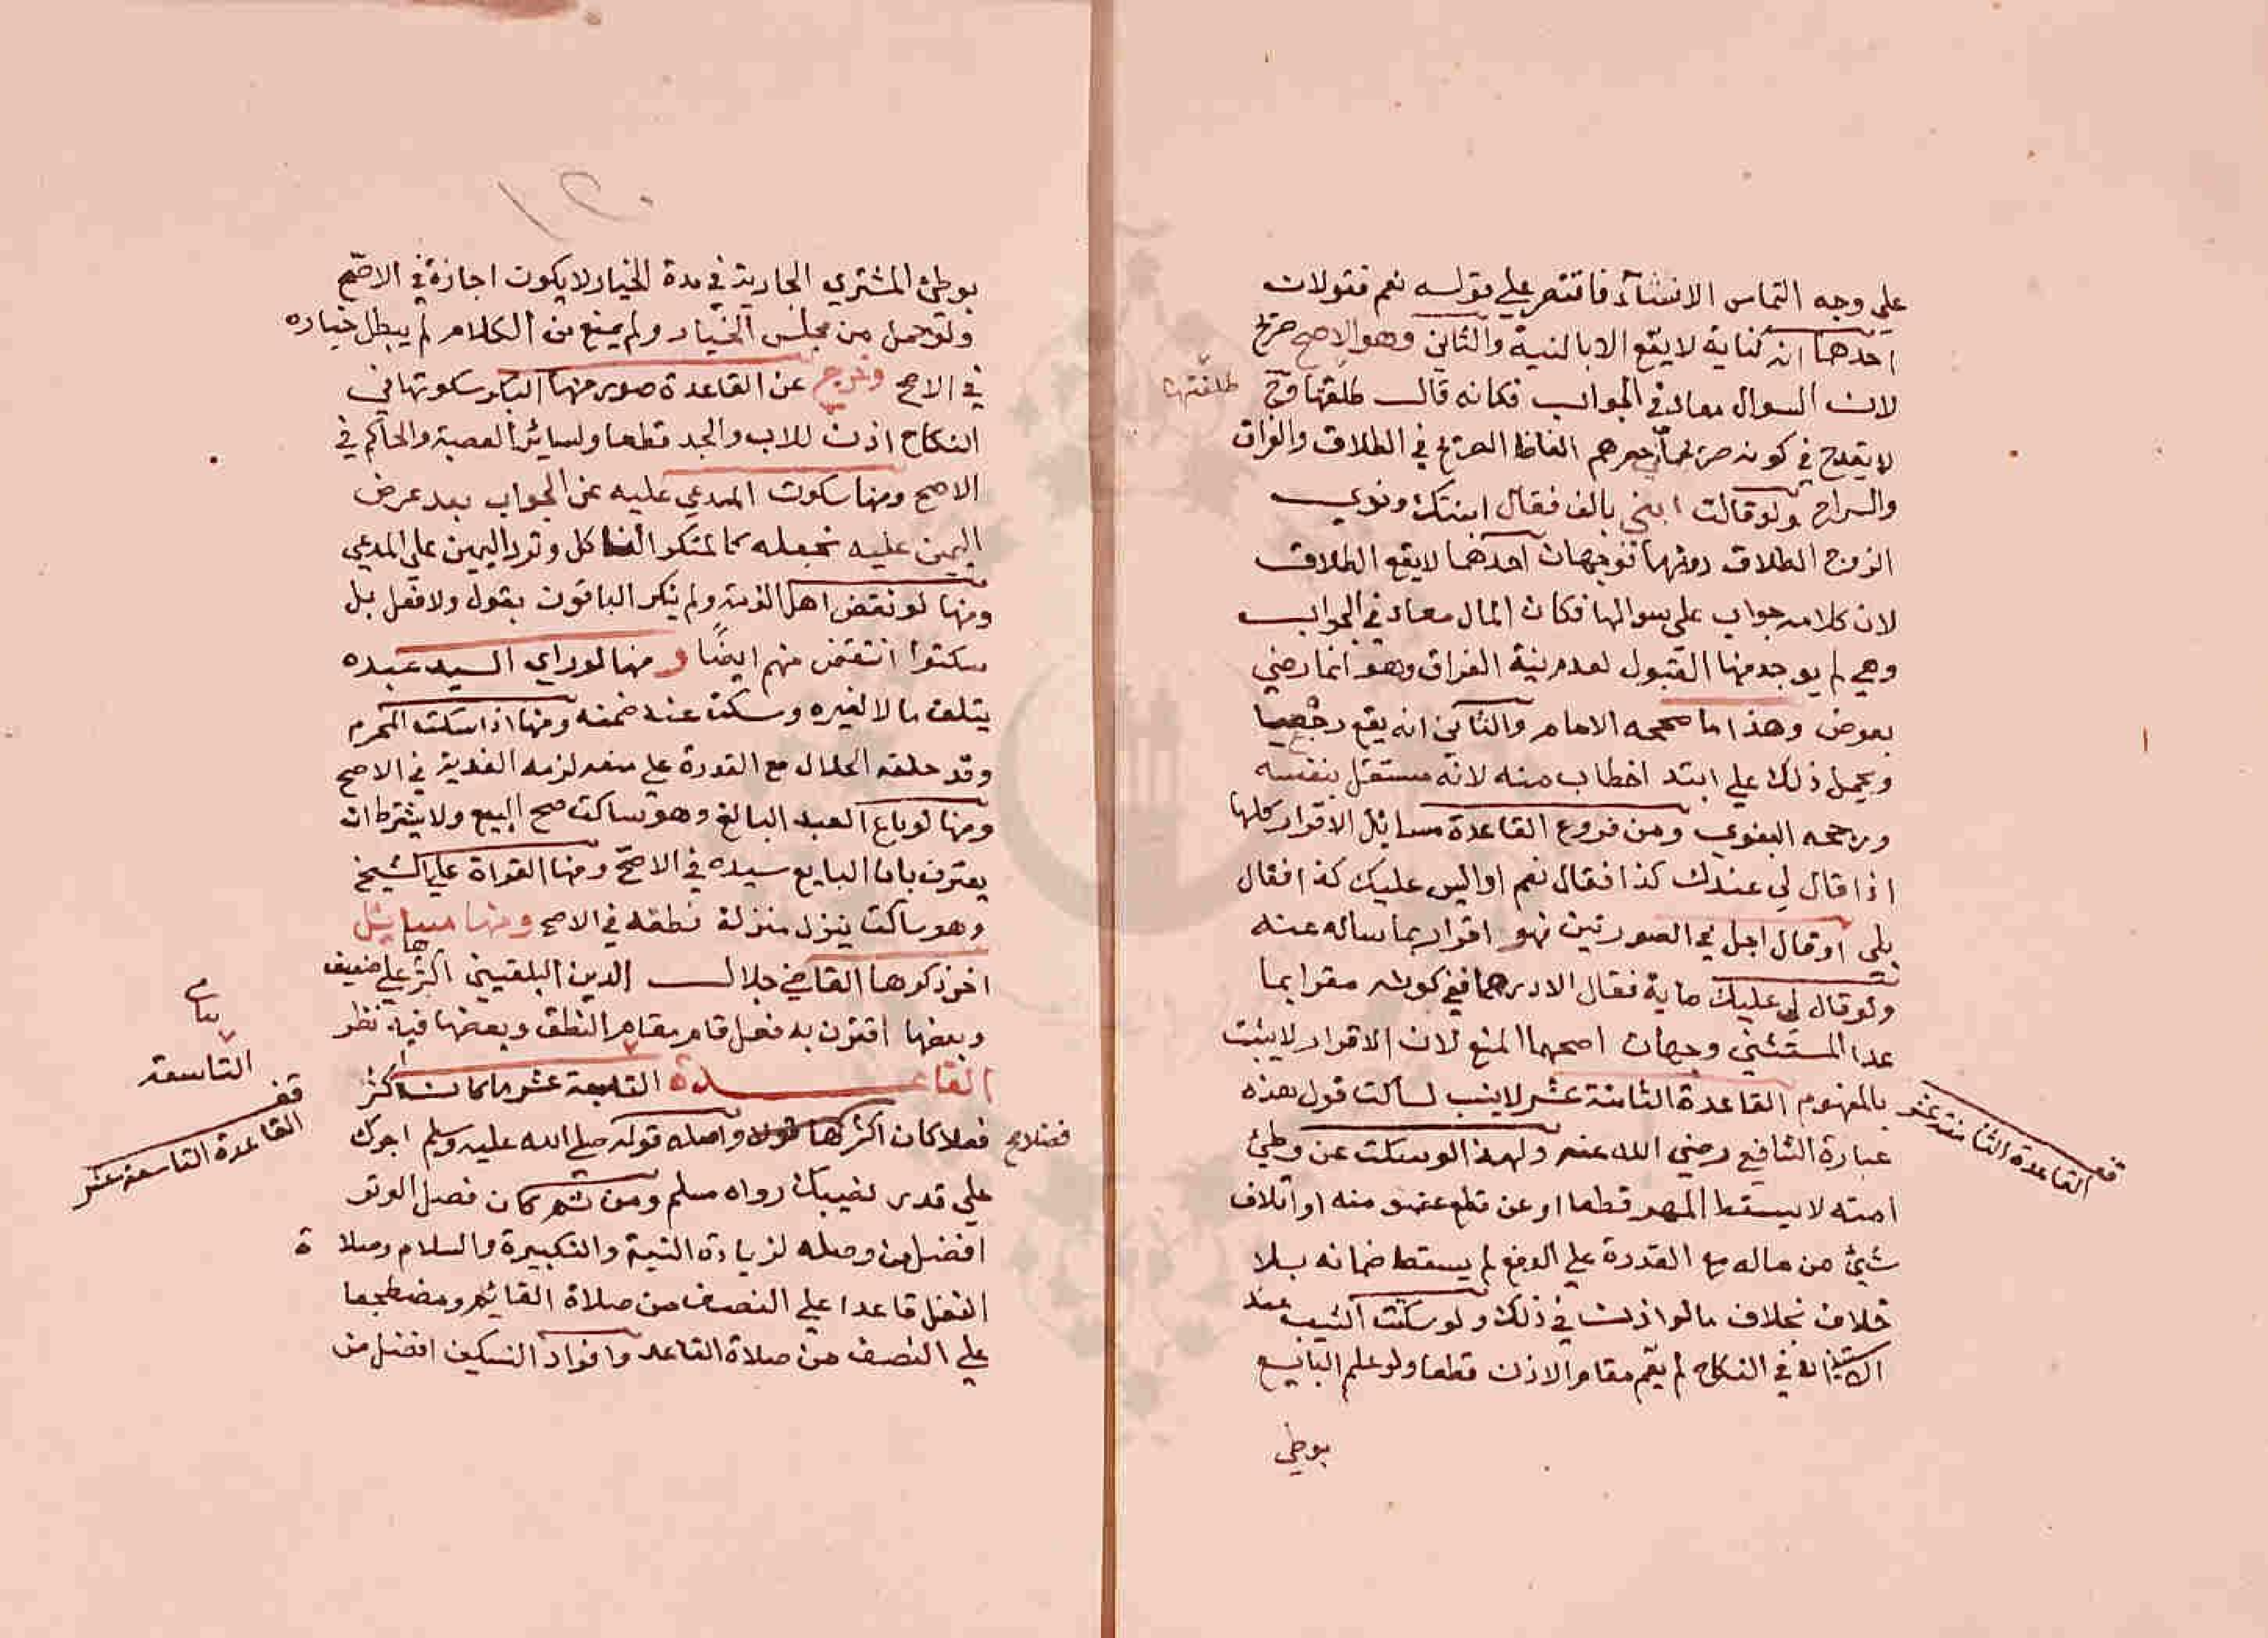 علي وجه التماس الانشآء فاقتصر علي قوله نعم فقولان
احدهما انه كناية لا يقع الا بالنية والثاني وهو الاصح صريح
لان السوال معاد في الجواب فكانه قال طلقتها وح
طلقتها
لا يقدح في كونه صريحا حصرهم الفاظ الصريح في الطلاق والفراق
والسراح ولو قالت ابني بالف فقال ابنتك ونوي
الزوج الطلاق دونها فوجهان احدهما لا يقع الطلاق
لان كلامه جواب علي سوالها فكان المال معاد في الجواب
وهي لم يوجد منها القبول لعدم نية الفراق وهو انما رضي
بعوض وهذا ما صححه الامام والثاني انه يقع رجعيا
ويحمل ذلك علي ابتدا خطاب منه لانه مستقل بنفسه
ورجحه البغوي ومن فروع القاعدة مسايل الاقرار كلها
اذا قال لي عندك كذا فقال نعم او اليس عليك كذا فقال
بلي او قال اجل في الصورتين فهو اقرار بما ساله عنه
ولو قال لي عليك ماية فقال الا درهما ففي كونه مقرا بما
عدا المستثني وجهان اصحهما المنع لان الاقرار لا يثبت
بالمفهوم القاعدة الثامنة عشر لا ينسب لساكت قول هذه
قف القاعدة الثامنة عشر
عبارة الشافعي رضي الله عنه ولهذا لو سكت عن وطئ
امته لا يسقط المهر قطعا او عن قطع عضو منه او اتلاف
شيئ من ماله مع القدرة علي الدفع لم يسقط ضمانه بلا
خلاف بخلاف ما لو اذن في ذلك ولو سكتت الثيب عند
الاستيذان في النكاح لم يقم مقام الاذن قطعا ولو علم البايع
بوطي
بوطئ المشتري الجارية في مدة الخيار لا يكون اجازة في الاصح
ولو حمل من مجلس الخيار ولم يمنع من الكلام لم يبطل خياره
في الاصح وخرج عن القاعدة صور منها البكر سكوتها في
النكاح اذن للاب والجد قطعا ولسائر العصبة والحاكم في
الاصح ومنها سكوت المدعي عليه عن الجواب بعد عرض
اليمين عليه نجعله كالمنكر الناكل وترد اليمين علي المدعي
ومنها لو نقض اهل الذمة ولم ينكر الباقون بقول ولا فعل بل
سكتوا انتقض منهم ايضًا ومنها لو راي السيد عبده
يتلف مالا لغيره وسكت عنه ضمنه ومنها اذا سكت المحرم
وقد حلقه الحلال مع القدرة علي منعه لزمه الفدية في الاصح
ومنها لو باع العبد البالغ وهو ساكت صح البيع ولا يشترط ان
يعترف بان البايع سيده في الاصح ومنها القراة علي الشيخ
وهو ساكت ينزل منزلة نطقه في الاصح ومنها مسايل
اخر ذكرها القاضي جلال الدين البلقيني اكثرها علي ضعيف
وبعضها اقترن به فعل قام مقام النطق وبعضها فيه نظر
القاعدة التاسعة عشر ما كان اكثر
بيان
التاسعة
قف
القاعدة التاسعة عشر
فعلا كان اكثر فضلا واصله قوله صلي الله عليه وسلم اجرك
فضلا صح
علي قدر نصيبك رواه مسلم ومن ثم كان فصل الوتر
افضل من وصله لزيادة النية والتكبيرة والسلام وصلاة
النفل قاعدا علي النصف من صلاة القائم ومضطجعا
علي النصف من صلاة القاعد وافراد النسكين افضل من